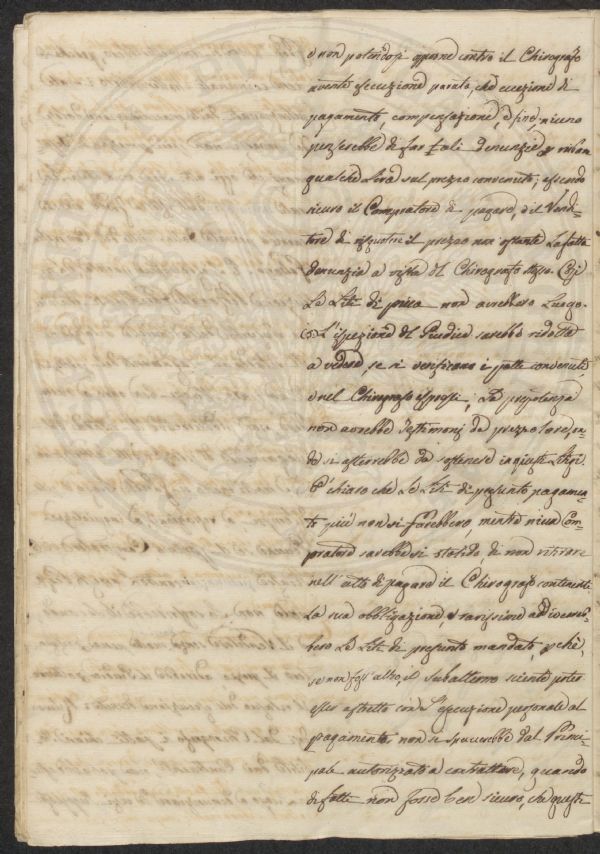 e non potendosi opporre contro il Chirografo
avente esecuzione parata, che eccezione di
pagamento, compensazione, e fine, niuno
penserebbe di far tali denunzie p
qualche Lira sul prezzo convenuto; essendo
sicuro il Compratore di pagare, e il Vendi-
tore di riscuotere il prezzo non ostante la fatta
denunzia a vista del Chirografo stesso. Così
Le Liti di prica non avrebbero Luogo.
L'ispezione del Giudice sarebbe ridotta
a vedere, se si verificano i patti convenuti
e nel Chirografo espressi; La prepotenza
non avrebbe Testimonj da prezzolare, on-
de si asterrebbe da sostenere ingiuste Litigi.
E' chiaro che Le Liti di presunto pagamen-
to più non si farebbero, mentre niun Com-
pratore sarebbe si stolido, di non ritirare
nell' atto di pagare il Chirografo contenente
La sua obbligazione, e rarissime addiverreb-
bero Le Liti di presunto mandato, pchè,
se non foss' altro, il subalterno sciente poter
esser astretto con L'esecuzione personale al
pagamento, non si spaccerebbe dal Princi-
pale autorizzato a contrattare, quando
di fatto non fosse ben sicuro, che questi